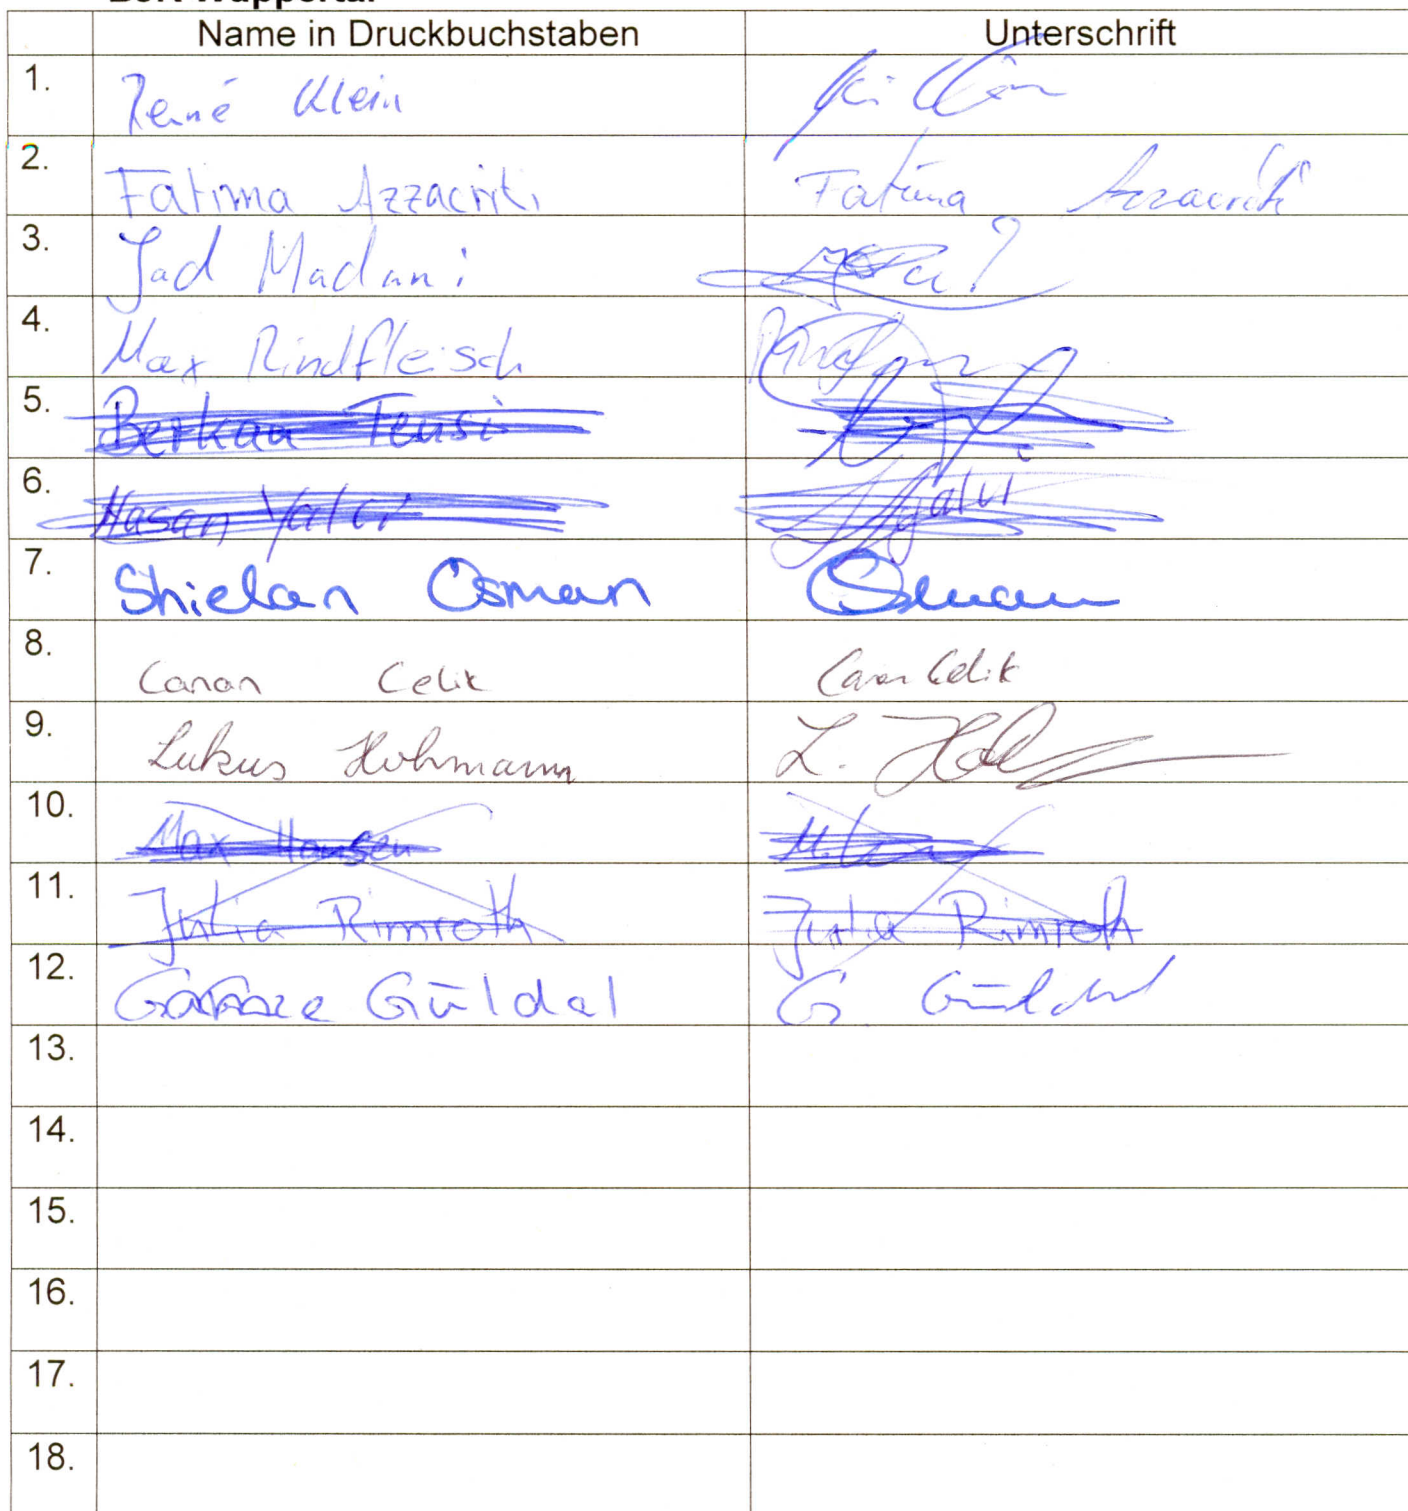 Name in Druckbuchstaben Unterschrift
1. René Klein
2. Fatima Azzacriti Fatima Azzacriti
3. Jad Madani
4. Max Rindfleisch
5. Berkan Tensi
6. Hasan Yalci
7. Shielan Osman Osman
8. Canan Celik Canan Celik
9. Lukas Hohmann L.
10. Max Hansen
11. Julia Rimroth Julia Rimroth
12. Güldal G. Güldal
13.
14.
15.
16.
17.
18.